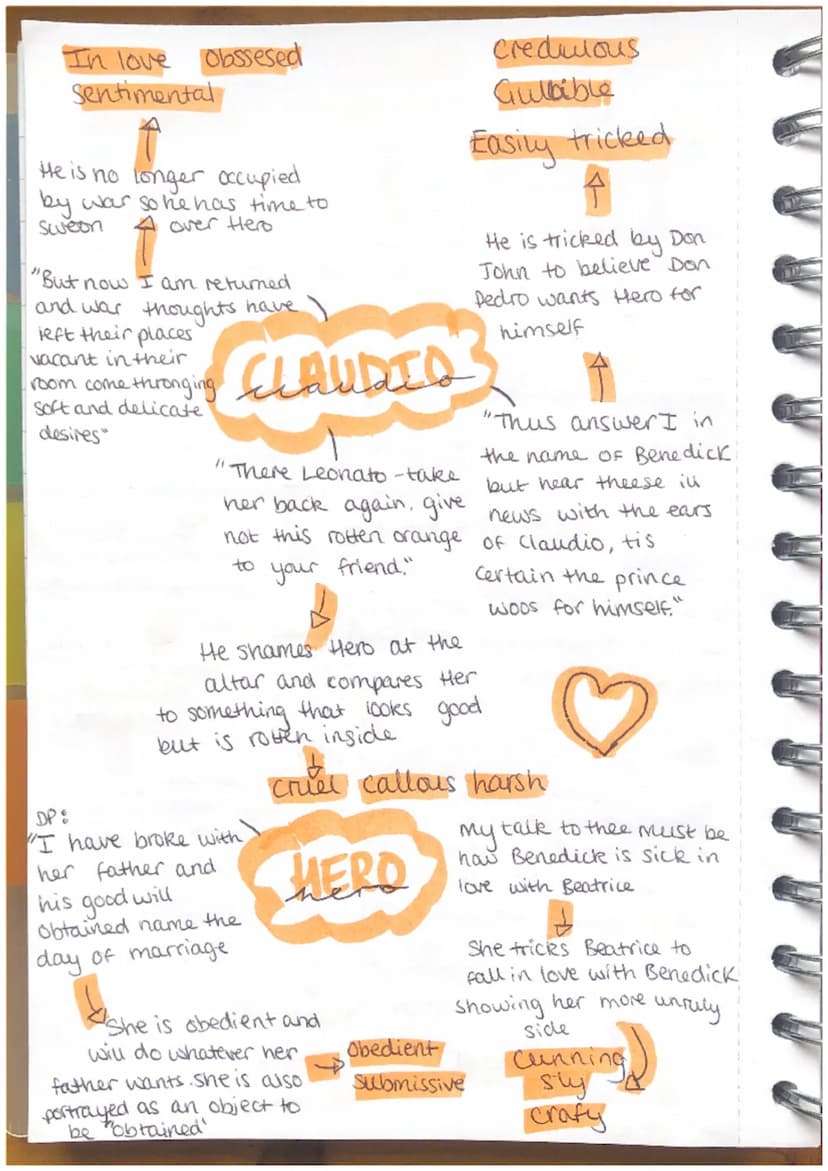 In love obssesed
Sentimental
He is no longer occupied
by war so he has time to
sweon over Hero
"But now I am returned
and war thoughts have
left their places
vacant in their
room come thronging
soft and delicate
desires"
credulous
Gullbible
Easily tricked
He is tricked by Don
John to believe Don
Pedro wants Hero for
himself
CLAUDIO
claudio
"Thus answer I in
the name of Benedick
but hear theese ill
news with the ears
of Claudio, tis
certain the prince
woos for himself."
"There Leonato - take
her back again, give
not this rotten orange
to your friend."
He shames Hero at the
altar and compares Her
to something that looks good
but is rotten inside
cruel callous harsh
HERO
hero
DP:
"I have broke with
her father and
his good will
obtained name the
day of marriage
She is obedient and
will do whatever her
father wants. She is also
portrayed as an object to
be "obtained'
obedient
submissive
My talk to thee must be
how Benedick is sick in
love with Beatrice
She tricks Beatrice to
fall in love with Benedick
showing her more unruly
side
Cunning
sly
crafy